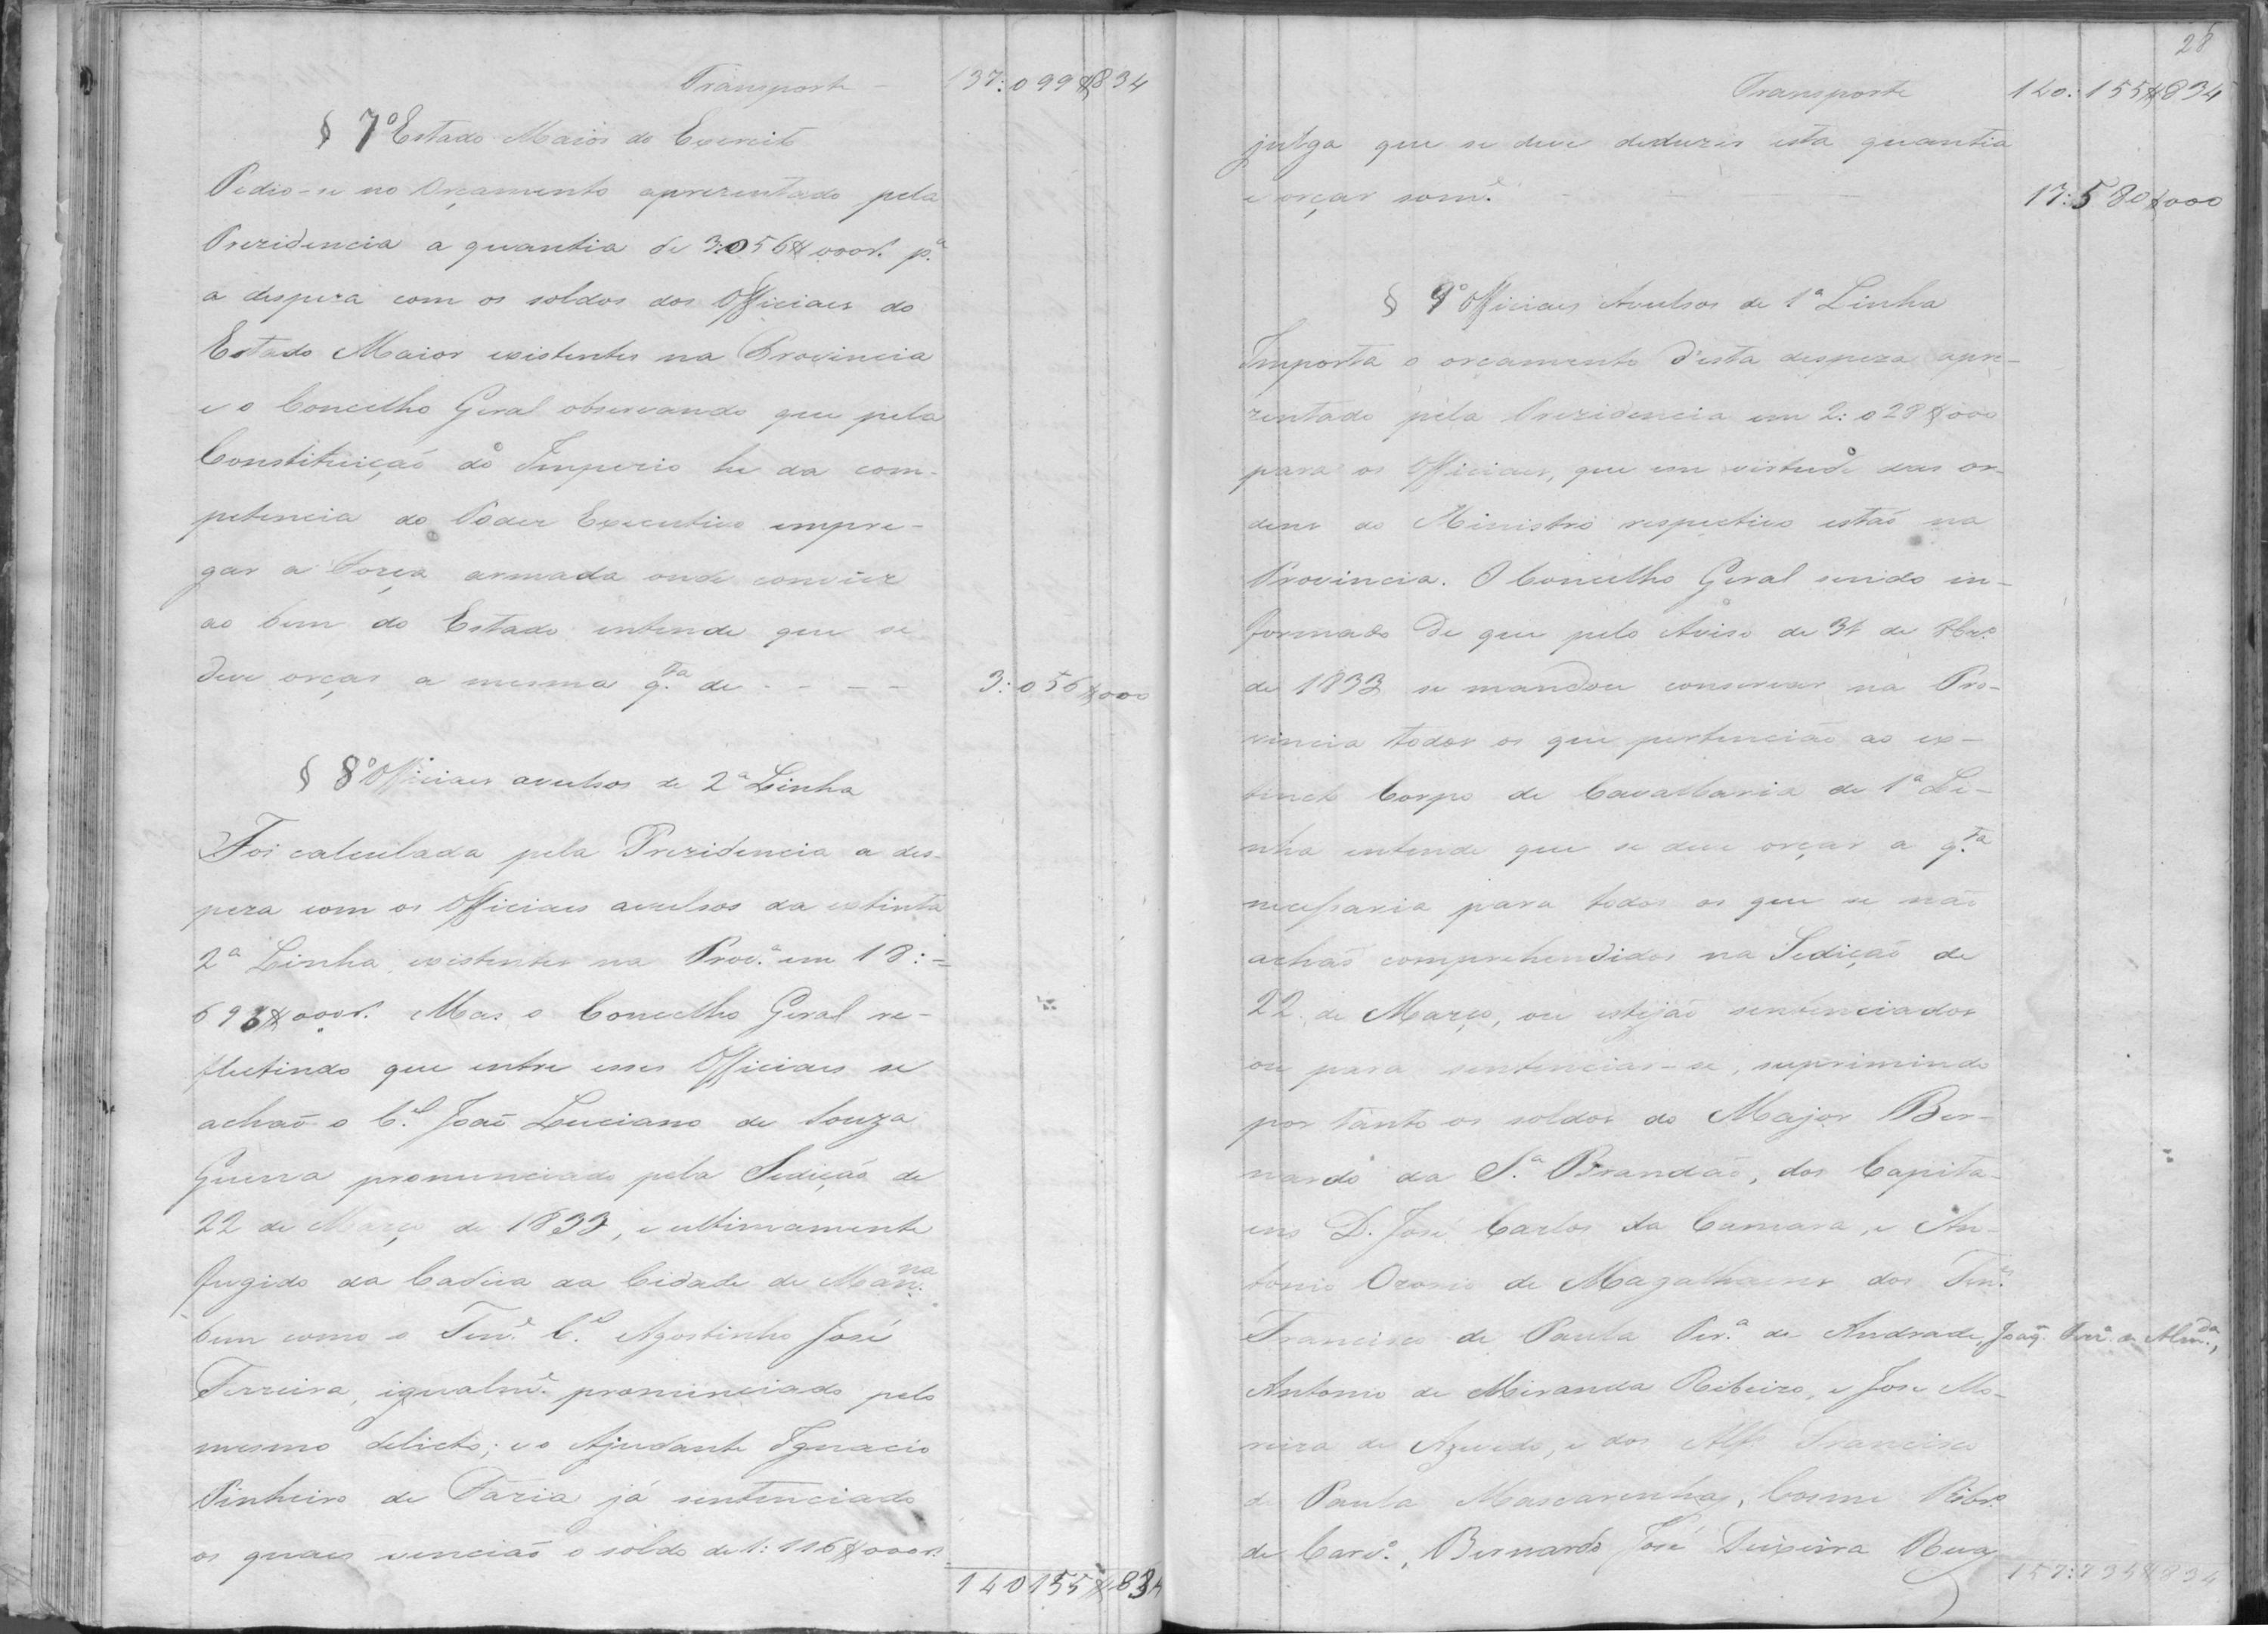 Transporte - 137:099$834
§ 7º Estado Maior do Exercito
Pedio-se no Orçamento aprezentado pela
Prezidencia a quantia de 3:056$000r. p.ª
a despeza com os soldos dos Officiaes do
Estado Maior existentes na Provincia
e o Concelho Geral observando que pela
Constituição do Imperio he da com-
petencia do Poder Executivo empre-
gar a Força armada onde convier
ao bem do Estado entende que se
deve orçar a mesma q.ta de - - - - 3:056$000
§ 8º Officiaes avulsos de 2ª Linha
Foi calculada pela Prezidencia a des-
peza com os Officiaes avulsos da extinta
2ª Linha existentes na Prov.ª em 18:=
696$000r. Mas o Concelho Geral re-
flectindo que entre esses Officiaes se
achaõ o C.el Joaõ Luciano de Souza
Guerra pronunciado pela Sediçaõ de
22 de Março de 1833, e ultimamente
fugido da Cadêa da Cidade de Marn.na
bem como o Ten.e C.el Agostinho José
Ferreira, igualm.e pronunciado pelo
mesmo delicto; e o Ajudante Ignacio
Pinheiro de Faria já sentenciado
os quaes venciaõ o soldo de 1:116$000r.
140155$834
28
Transporte 140:155$834
julga que se deve deduzir esta quantia
e orçar som.e - - - 17:580$000
§ 9º Officiaes Avulsos de 1ª Linha
Importa o orçamento d'esta despeza apre-
zentado pela Prezidencia em 2:028$000
para os Officiaes, que em virtude das or-
dens do Ministro respectivo estaõ na
Provincia. O Concelho Geral sendo in-
formado de que pelo Aviso de 31 de 8br.o
de 1833 se mandou conservar na Pro-
vincia todos os que pertenciaõ ao ex-
tincto Corpo de Cavallaria de 1ª Li-
nha entende que se deve orçar a q.ta
necessaria para todos os que se naõ
achaõ comprehendidos na Sediçaõ de
22 de Março, ou estejaõ sentenciados
ou para sentenciar-se, suprimindo
por tanto os soldos do Major Ber-
nardo da S.ª Brandaõ, dos Capita-
ens D. José Carlos da Camara, e An-
tonio Ozorio de Magalhaens dos Ten.es
Francisco de Paula Per.ª de Andrade, Joaq. Ferr.ª de Alm.da,
Antonio de Miranda Ribeiro, e Jose Mo-
reira de Azevedo, e dos Alf. Francisco
de Paula Mascarenhas, Cosme Ribr.o
de Carv.o, Bernardo José Teixeira Rua
157:735$834